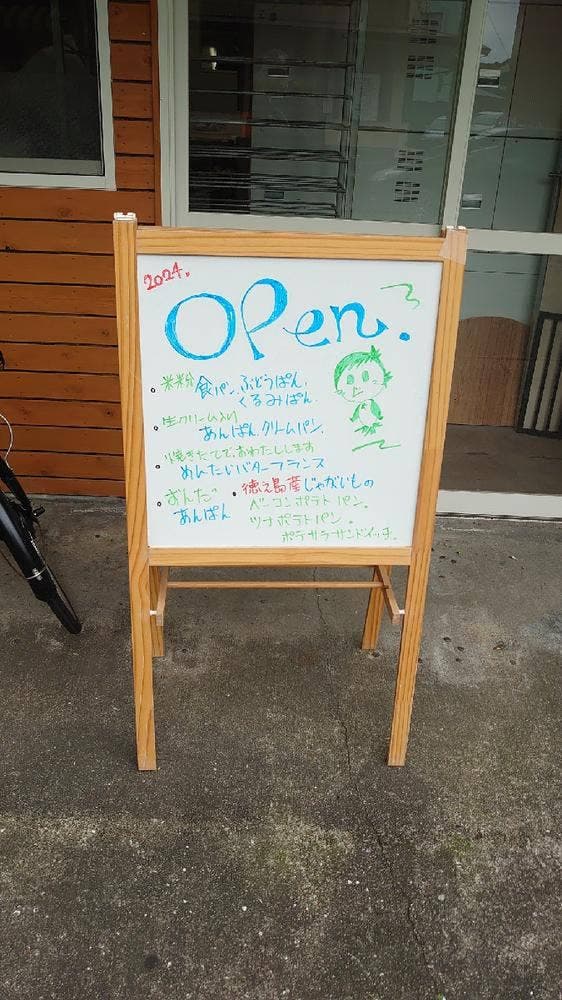 2024.
OPen.
・米粉 食パン、ぶどうぱん、
くるみぱん、
・生クリーム入り
あんぱん、クリームパン、
・焼きたてで、おわたしします
めんたいバターフランス
・ずんだ
あんぱん
・徳之島産じゃがいもの
ベーコンポテトパン。
ツナポテトパン。
ポテサラサンドイッチ。